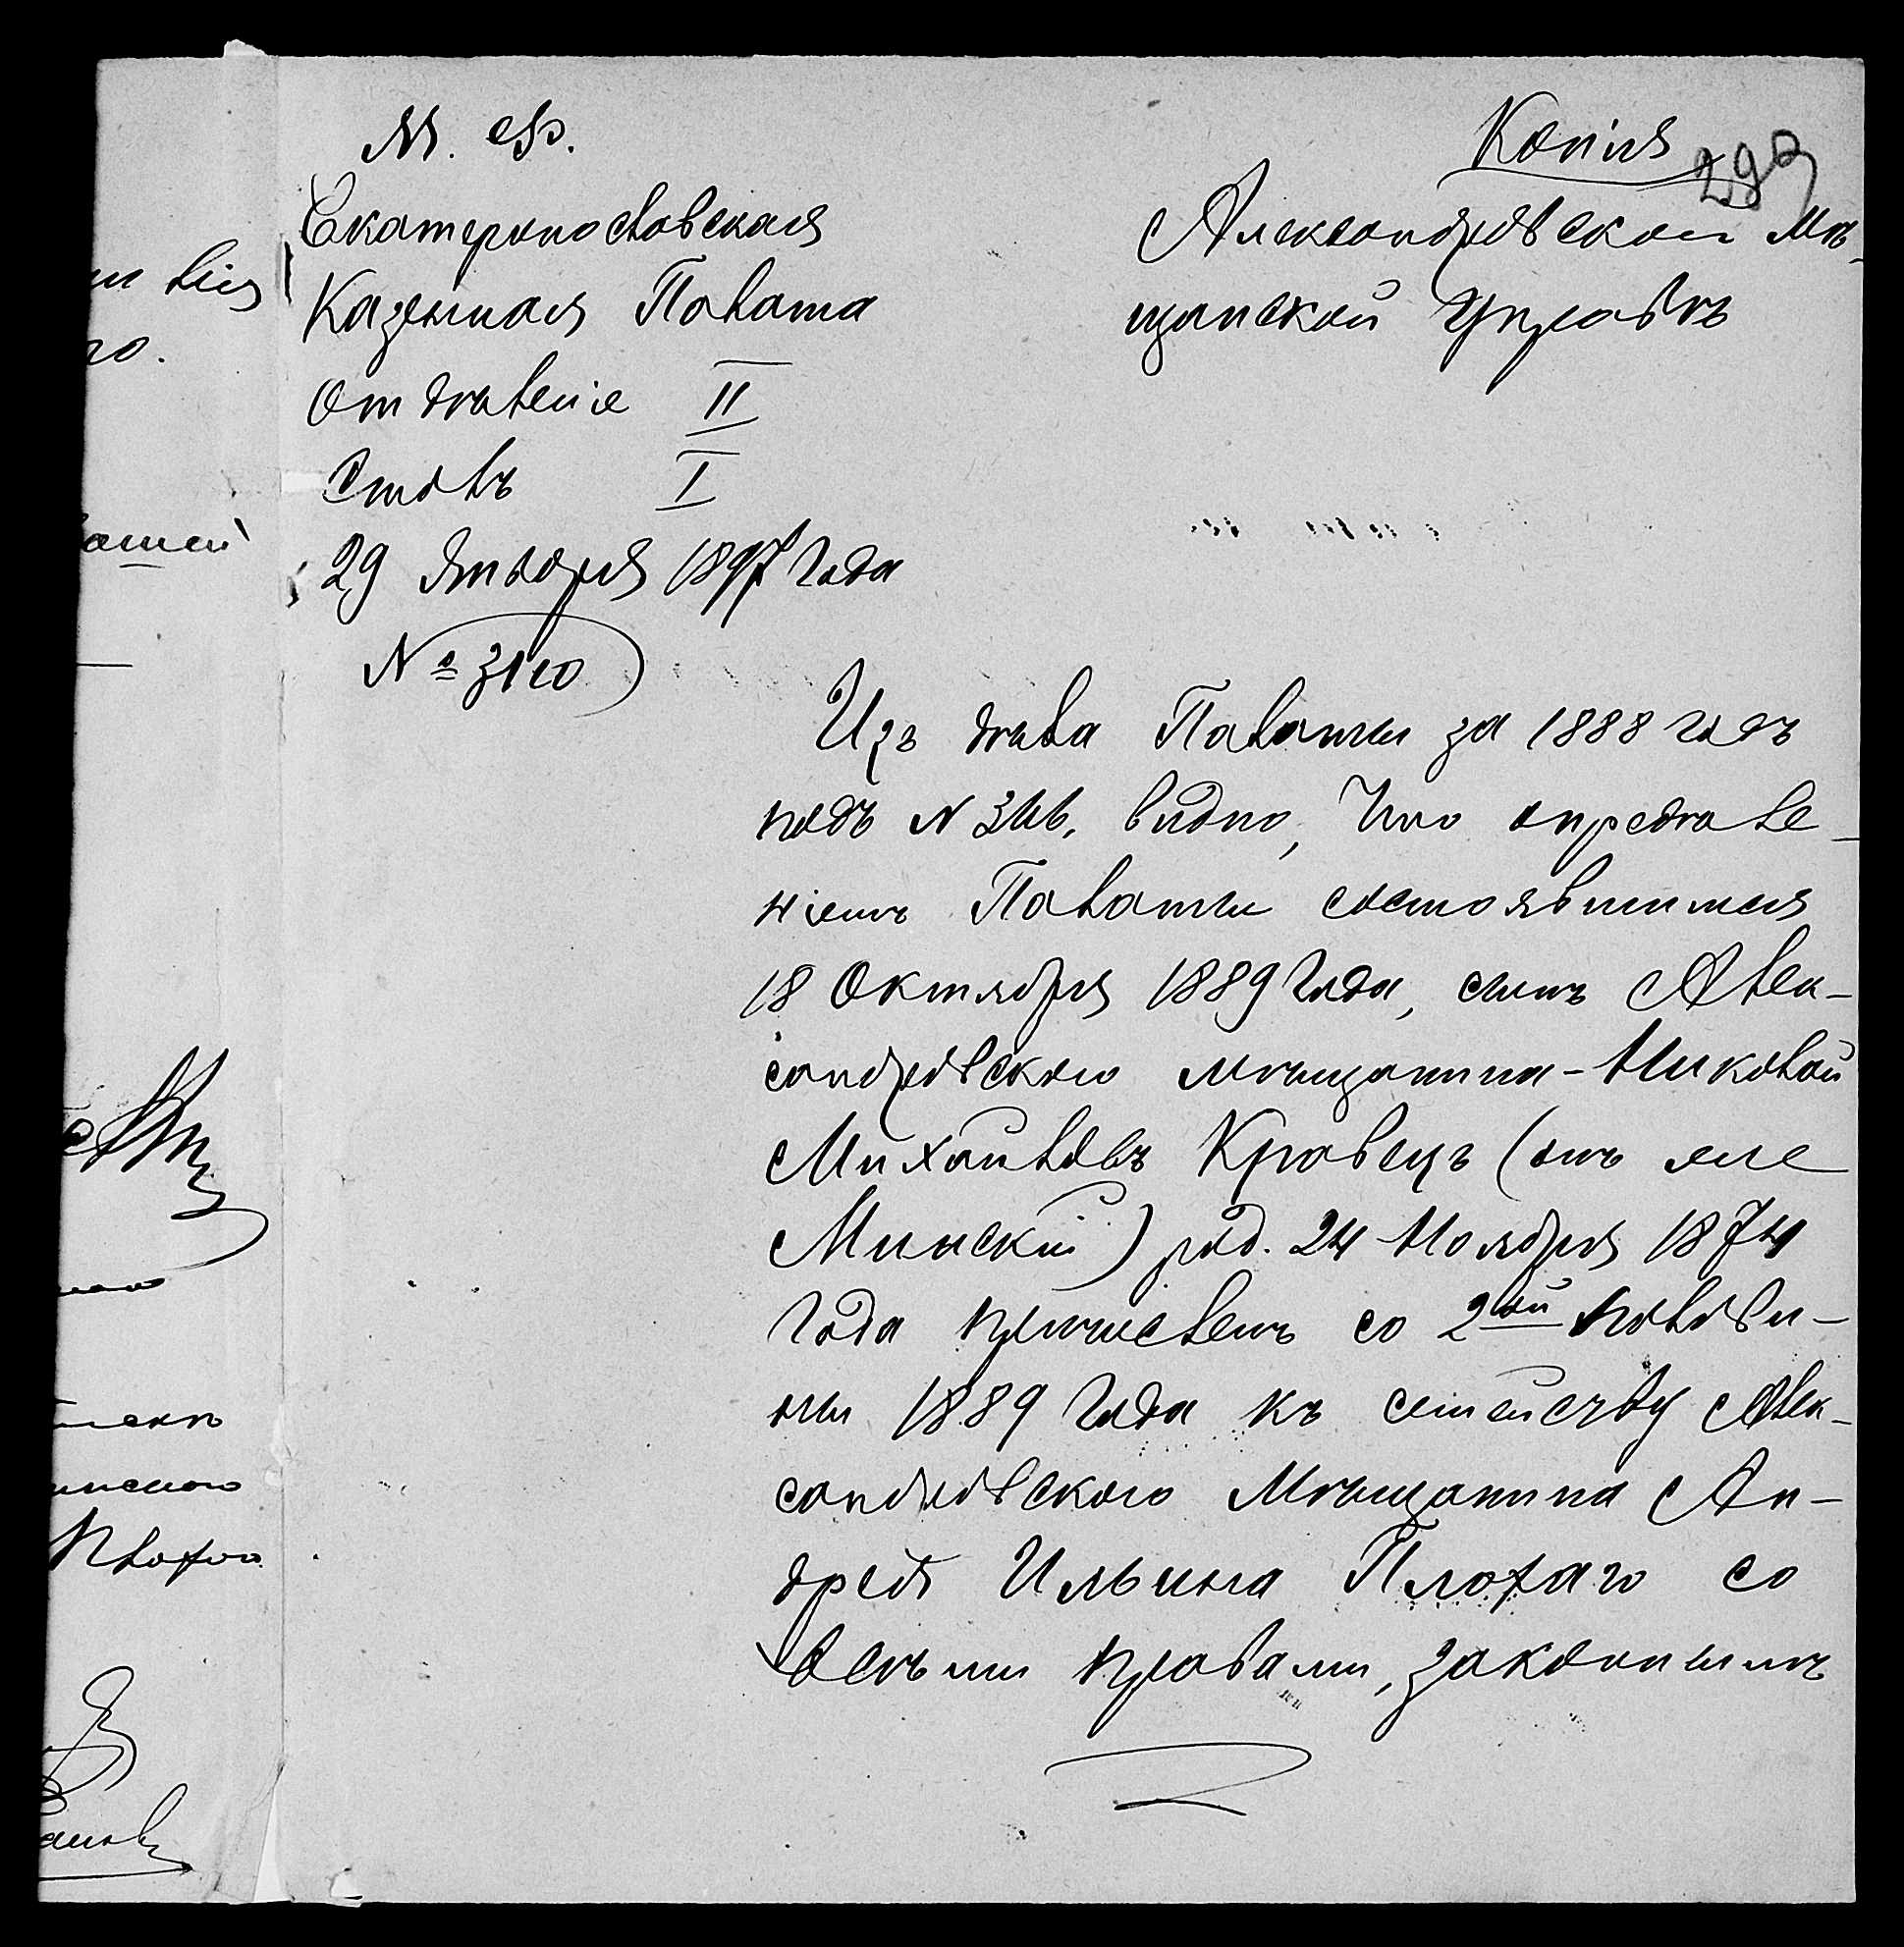 М. Ф.
Копія
Екатеринославская
Казенная Палата
Отдѣленіе II
Столъ I
29 Января 1897 года
№ 3110
Александровской Мѣ-
щанской Управѣ
Изъ дѣла Палаты за 1888 годъ
подъ N видно, что опредѣле-
ніемъ Палаты состоявшимся
18 Октября 1889 года, сынъ Алек-
сандровскаго мѣщанина - Николай
Михайловъ Кравецъ (онъ же
Минскій) род. 24 Ноября 1874
года причисленъ со 2ой полови-
ны 1889 года къ семейству Алек-
сандровскаго Мѣщанина Ан-
дрея Ильина Плохаго со
всѣми правами, законнымъ